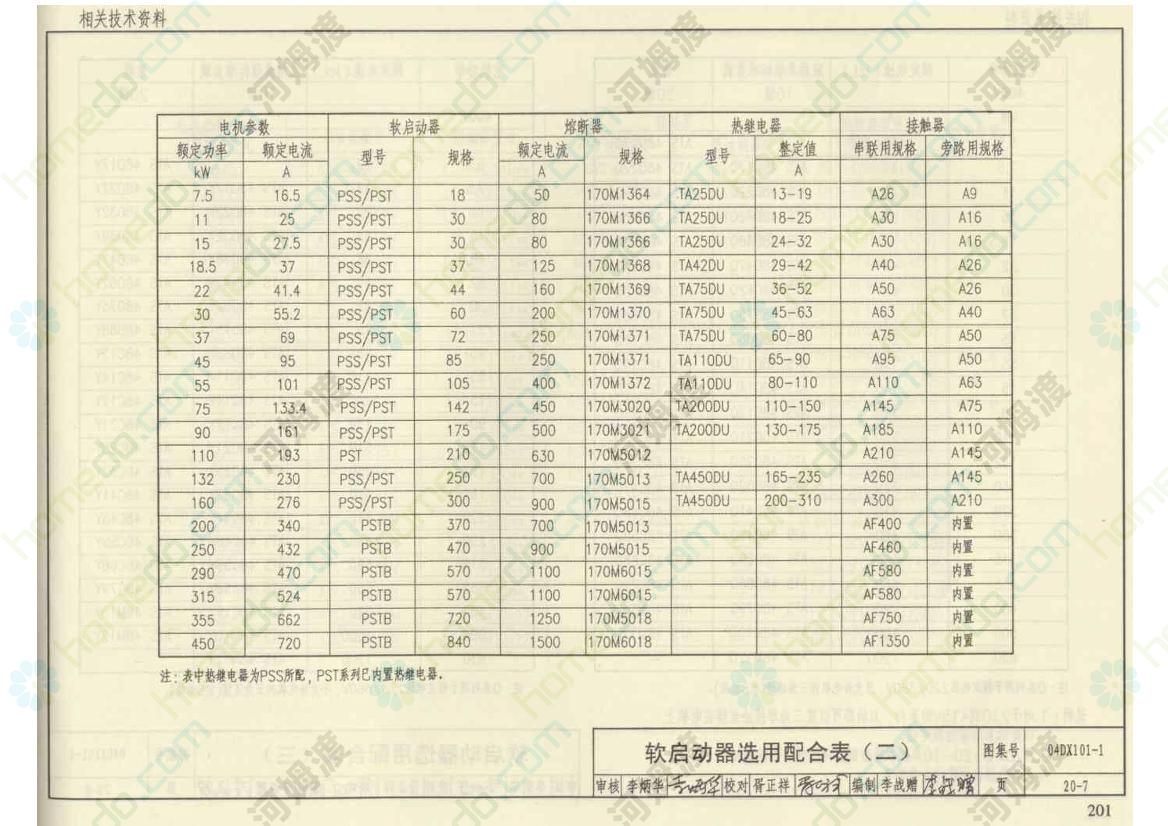 相关技术资料
电机参数 软启动器 熔断器 热继电器 接触器
额定功率 额定电流 型号 规格 额定电流 规格 型号 整定值 串联用规格 旁路用规格
kW A A A
7.5 16.5 PSS/PST 18 50 170M1364 TA25DU 13-19 A26 A9
11 25 PSS/PST 30 80 170M1366 TA25DU 18-25 A30 A16
15 27.5 PSS/PST 30 80 170M1366 TA25DU 24-32 A30 A16
18.5 37 PSS/PST 37 125 170M1368 TA42DU 29-42 A40 A26
22 41.4 PSS/PST 44 160 170M1369 TA75DU 36-52 A50 A26
30 55.2 PSS/PST 60 200 170M1370 TA75DU 45-63 A63 A40
37 69 PSS/PST 72 250 170M1371 TA75DU 60-80 A75 A50
45 95 PSS/PST 85 250 170M1371 TA110DU 65-90 A95 A50
55 101 PSS/PST 105 400 170M1372 TA110DU 80-110 A110 A63
75 133.4 PSS/PST 142 450 170M3020 TA200DU 110-150 A145 A75
90 161 PSS/PST 175 500 170M3021 TA200DU 130-175 A185 A110
110 193 PST 210 630 170M5012 A210 A145
132 230 PSS/PST 250 700 170M5013 TA450DU 165-235 A260 A145
160 276 PSS/PST 300 900 170M5015 TA450DU 200-310 A300 A210
200 340 PSTB 370 700 170M5013 AF400 内置
250 432 PSTB 470 900 170M5015 AF460 内置
290 470 PSTB 570 1100 170M6015 AF580 内置
315 524 PSTB 570 1100 170M6015 AF580 内置
355 662 PSTB 720 1250 170M5018 AF750 内置
450 720 PSTB 840 1500 170M6018 AF1350 内置
注: 表中热继电器为PSS所配, PST系列已内置热继电器.
软启动器选用配合表(二) 图集号 04DX101-1
审核 李炳华 校对 胥正祥 编制 李战赠 页 20-7
201
homedo.com 河姆渡